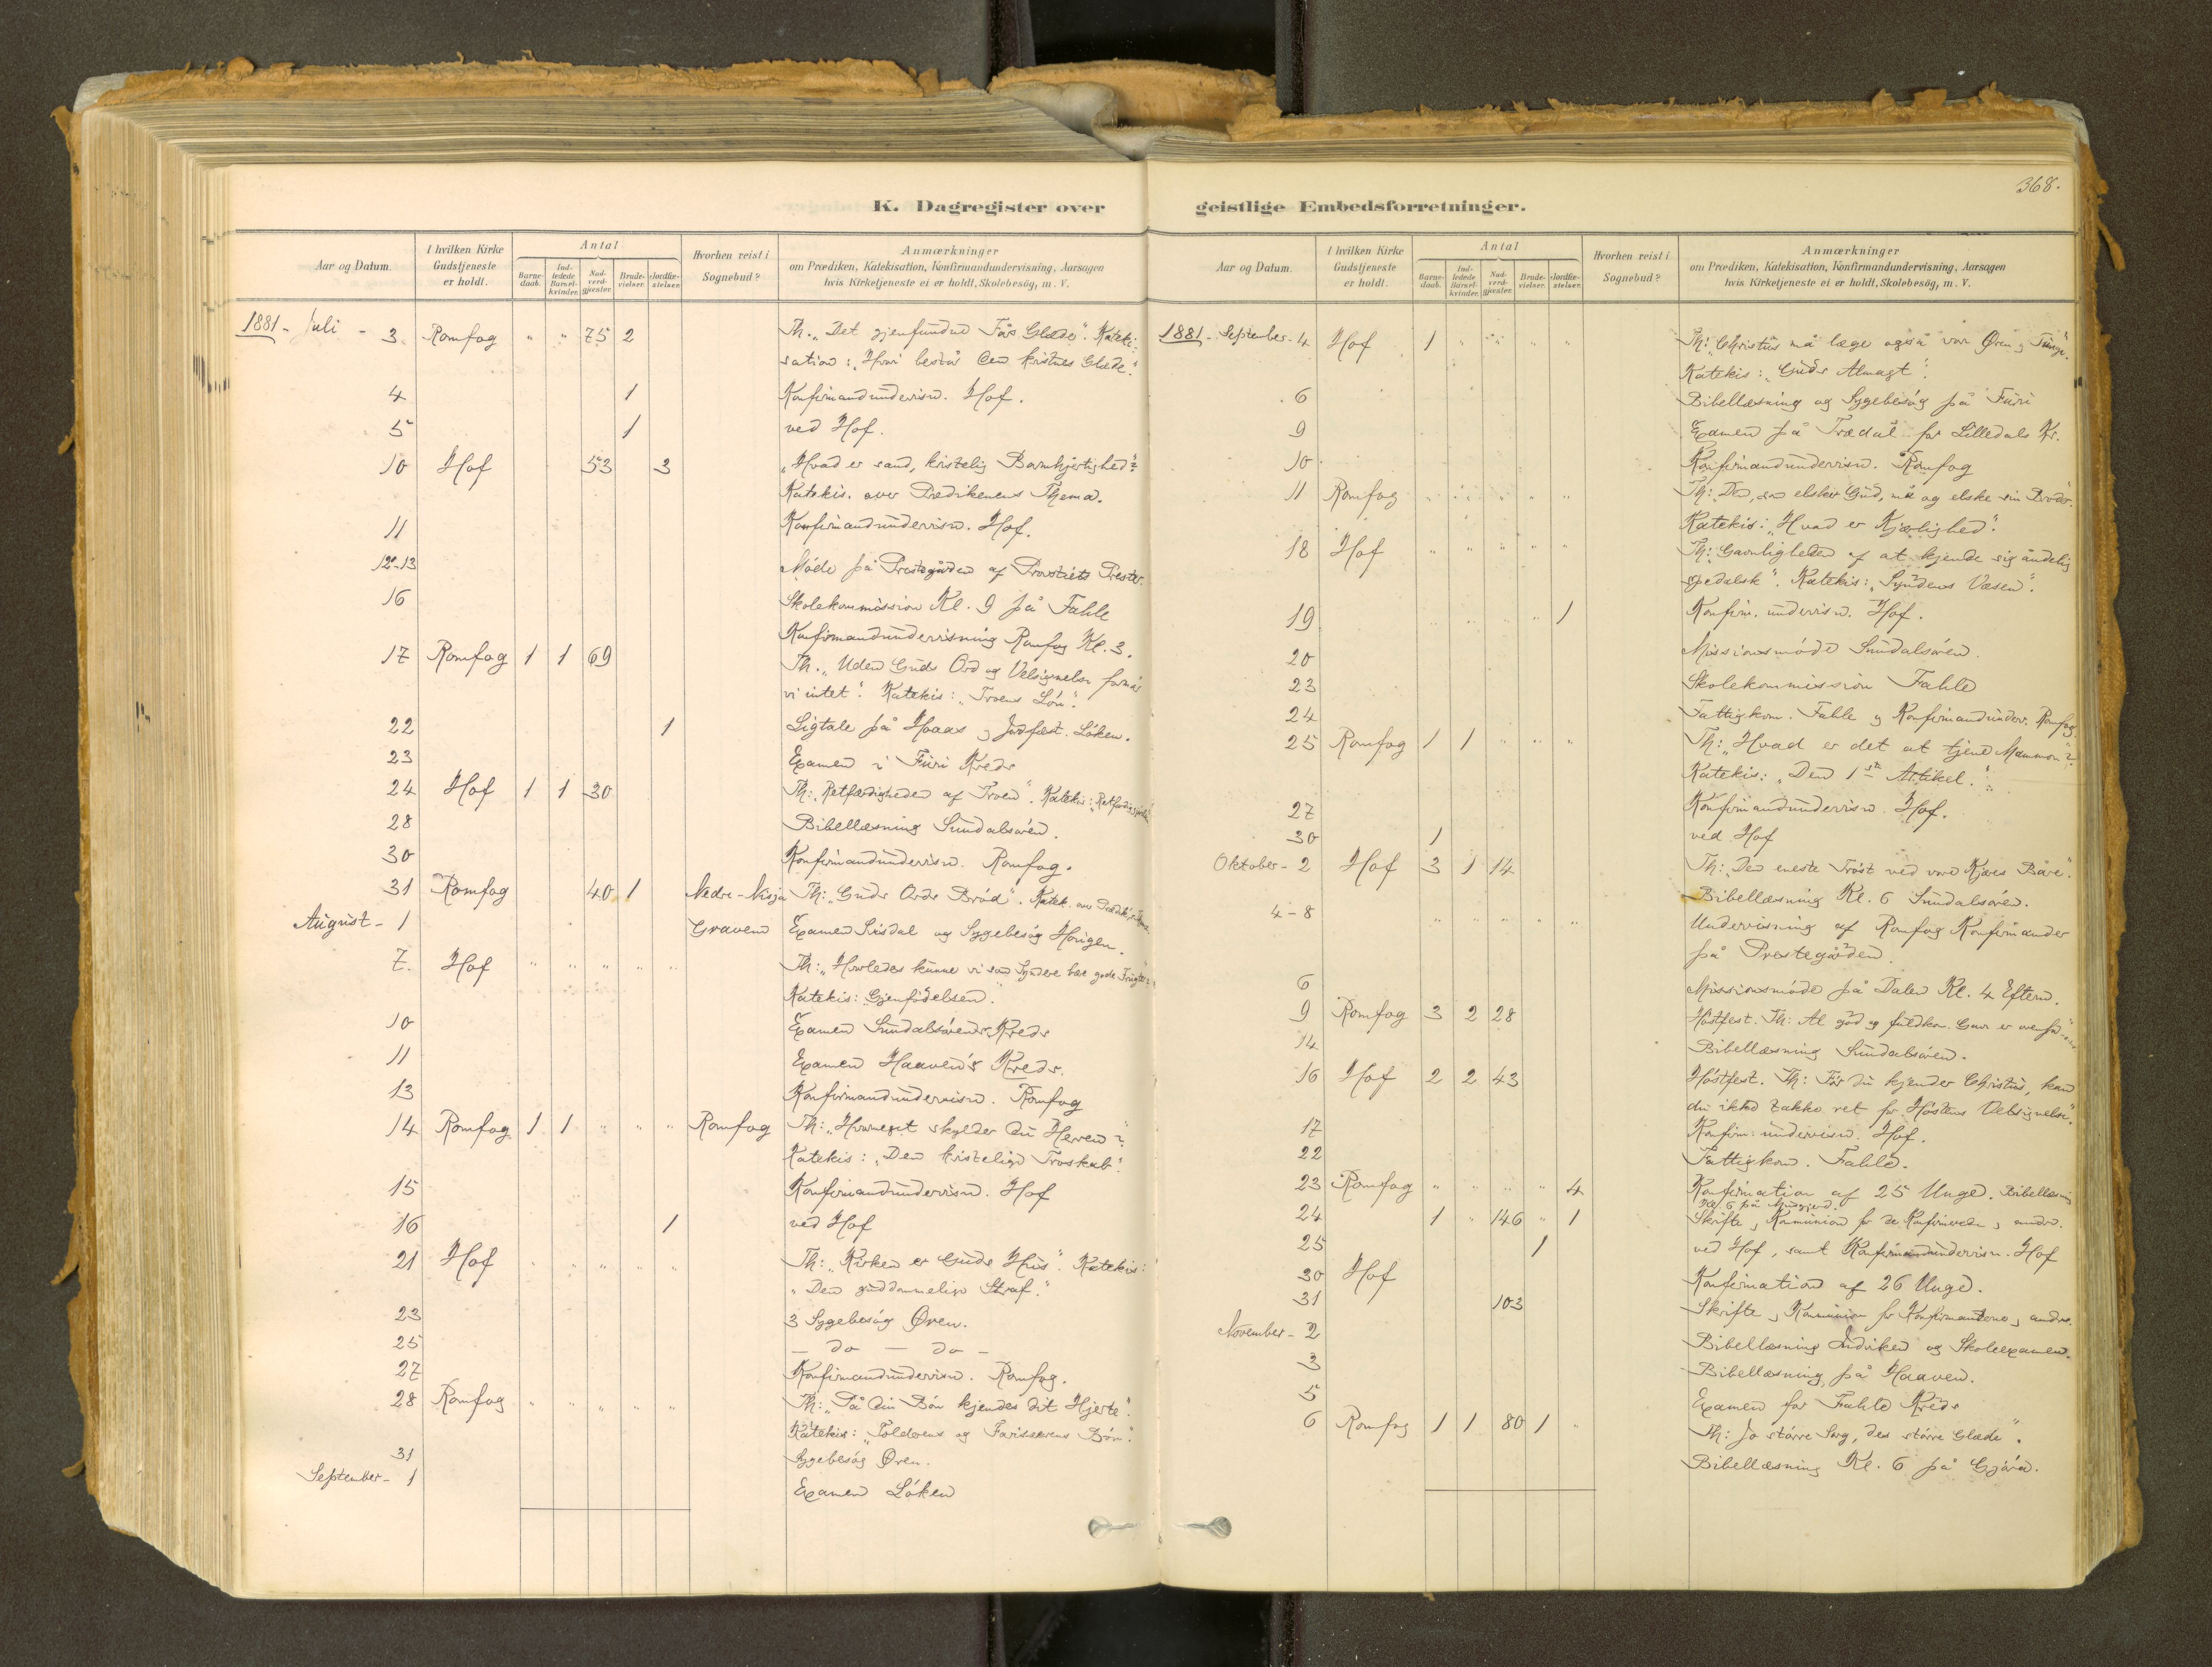 368.
K. Dagregister over
Aar og Datum.
I hvilken Kirke Gudstjeneste er holdt.
Antal
Barne-daab.
Ind-ledede Barsel-kvinder.
Nad-verd-gjæster.
Brude-vielser.
Jordfæ-stelser.
Hvorhen reist i Sognebud?
Anmærkninger
om Prædiken, Katekisation, Konfirmandundervisning, Aarsagen
hvis Kirketjeneste ei er holdt, Skolebesög, m. V.
1881 - Juli - 3. Romfog " " 75 2 Th. "Det gjenfundne Fårs Glæde". Kateki-
sation: "Hvori består den kristnes Glæde."
4 1 Konfirmandundervisn. Hof.
5 1 ved Hof.
10 Hof 53 3 "Hvad er sand, kristelig Barmhjertighed"?
Katekis. over Prædikenens Thema.
11 Konfirmandundervisn. Hof.
12-13 Møde på Prestegården af Provstiets Prester.
16 Skolekommission Kl. 9 på Fahle
Konfirmandundervisning Romfog Kl. 3.
17 Romfog 1 1 69 Th. "Uden Guds Ord og Velsignelse formår
vi intet". Katekis: "Troens Lön".
22 1 Ligtale på Hoaas og Jordfæst. Löken.
23 Examen i Furi Kreds
24 Hof 1 1 30 Th: "Retfærdigheden af Troen". Katekis:
28 Bibellæsning Sundalsören.
30 Konfirmandundervisn. Romfog.
31 Romfog 40 1 Nedre-Nisja Th: "Guds Ords Bröd". Katek. over
August - 1 Gravem Examen Lisdal og Sygebesög Horigen.
7. Hof " " " " " Th: "Hvorledes kunne vi som Syndere bære gode Frugter"?
Katekis: Gjenfödelsen.
10 Examen Sundalsörens Kreds
11 Examen Haaven's Kreds.
13 Konfirmandundervisn. Romfog
14 Romfog 1 1 " " " Romfog Th: "Hvormeget skylder du Herren"?
Katekis: "Den kristelige Troskab".
15 Konfirmandundervisn. Hof
16 1 ved Hof
21 Hof " " " " " Th: "Kirken er Guds Hus". Katekis:
"Den guddommelige Straf."
23 3 Sygebesög Øren.
25 — do — do —
27 Konfirmandundervisn. Romfog.
28 Romfog " " " " " Th: "På din Bön kjendes dit Hjerte".
Katekis: "Tolderens og Farisæerens Bön".
31 Sygebesög Øren.
September - 1 Examen Löken
geistlige Embedsforretninger.
Aar og Datum.
I hvilken Kirke Gudstjeneste er holdt.
Antal
Barne-daab.
Ind-ledede Barsel-kvinder.
Nad-verd-gjæster.
Brude-vielser.
Jordfæ-stelser.
Hvorhen reist i Sognebud?
Anmærkninger
om Prædiken, Katekisation, Konfirmandundervisning, Aarsagen
hvis Kirketjeneste ei er holdt, Skolebesög, m. V.
1881 - September - 4 Hof 1 " " " " Th: "Christus må læge også vor Øren og Tunge".
Katekis: "Guds Almagt".
6 Bibellæsning og Sygebesög på Furi
9 Examen på Trædal for Lilledals Kr.
10 Konfirmandundervisn. Romfog
11 Romfog " " " " " Th: "Den, som elsker Gud, må og elske sin Broder".
Katekis: "Hvad er Kjærlighed".
18 Hof " " " " " Th: Gavnligheden af at kjende sig åndelig
spedalsk". Katekis: "Syndens Væsen".
19 1 Konfirm. undervisn. Hof.
20 Missionsmöde Sundalsören.
23 Skolekommission Fahle
24 Fattigkom. Fahle og Konfirmandunderv. Romfog.
25 Romfog 1 1 " " " Th: "Hvad er det at tjene Mammon"?
Katekis: "Den 1ste Artikel."
27 Konfirmandundervisn. Hof.
30 1 ved Hof
Oktober - 2 Hof 3 1 14 Th: "Den eneste Tröst ved vore Kjæres Båre".
Bibellæsning Kl. 6 Sundalsören.
4-8 " " " " " Undervisning af Romfog Konfirmander
på Prestegården.
6 Missionsmöde på Dalen Kl. 4 Efterm.
9 Romfog 3 2 28 Höstfest. Th: Al god og fuldkom. Gave er
14 Bibellæsning Sundalsören.
16 Hof 2 2 43 Höstfest. Th: Før du kjender Christus, kan
du ikke takke ret for Höstens Velsignelse".
17 Konfirm: undervisn. Hof.
22 Fattigkom. Fahle.
23 Romfog " " " " 4 Konfirmation af 25 Unge. Bibellæsning
Kl. 6 på
24 1 " 146 " 1 Skrifte, Kommunion for de Konfirmerede, andre.
25 1 ved Hof, samt Konfirmandundervisn. Hof
30 Hof Konfirmation af 26 Unge.
31 103 Skrifte, Kommunion for Konfirmanderne, andre.
November - 2 Bibellæsning Jordviken og Skoleexamen.
3 Bibellæsning på Haaven.
5 Examen for Fahle Kreds
6 Romfog 1 1 80 1 " Th: Jo större Sorg, des större Glæde".
Bibellæsning Kl. 6 på Gjöra.